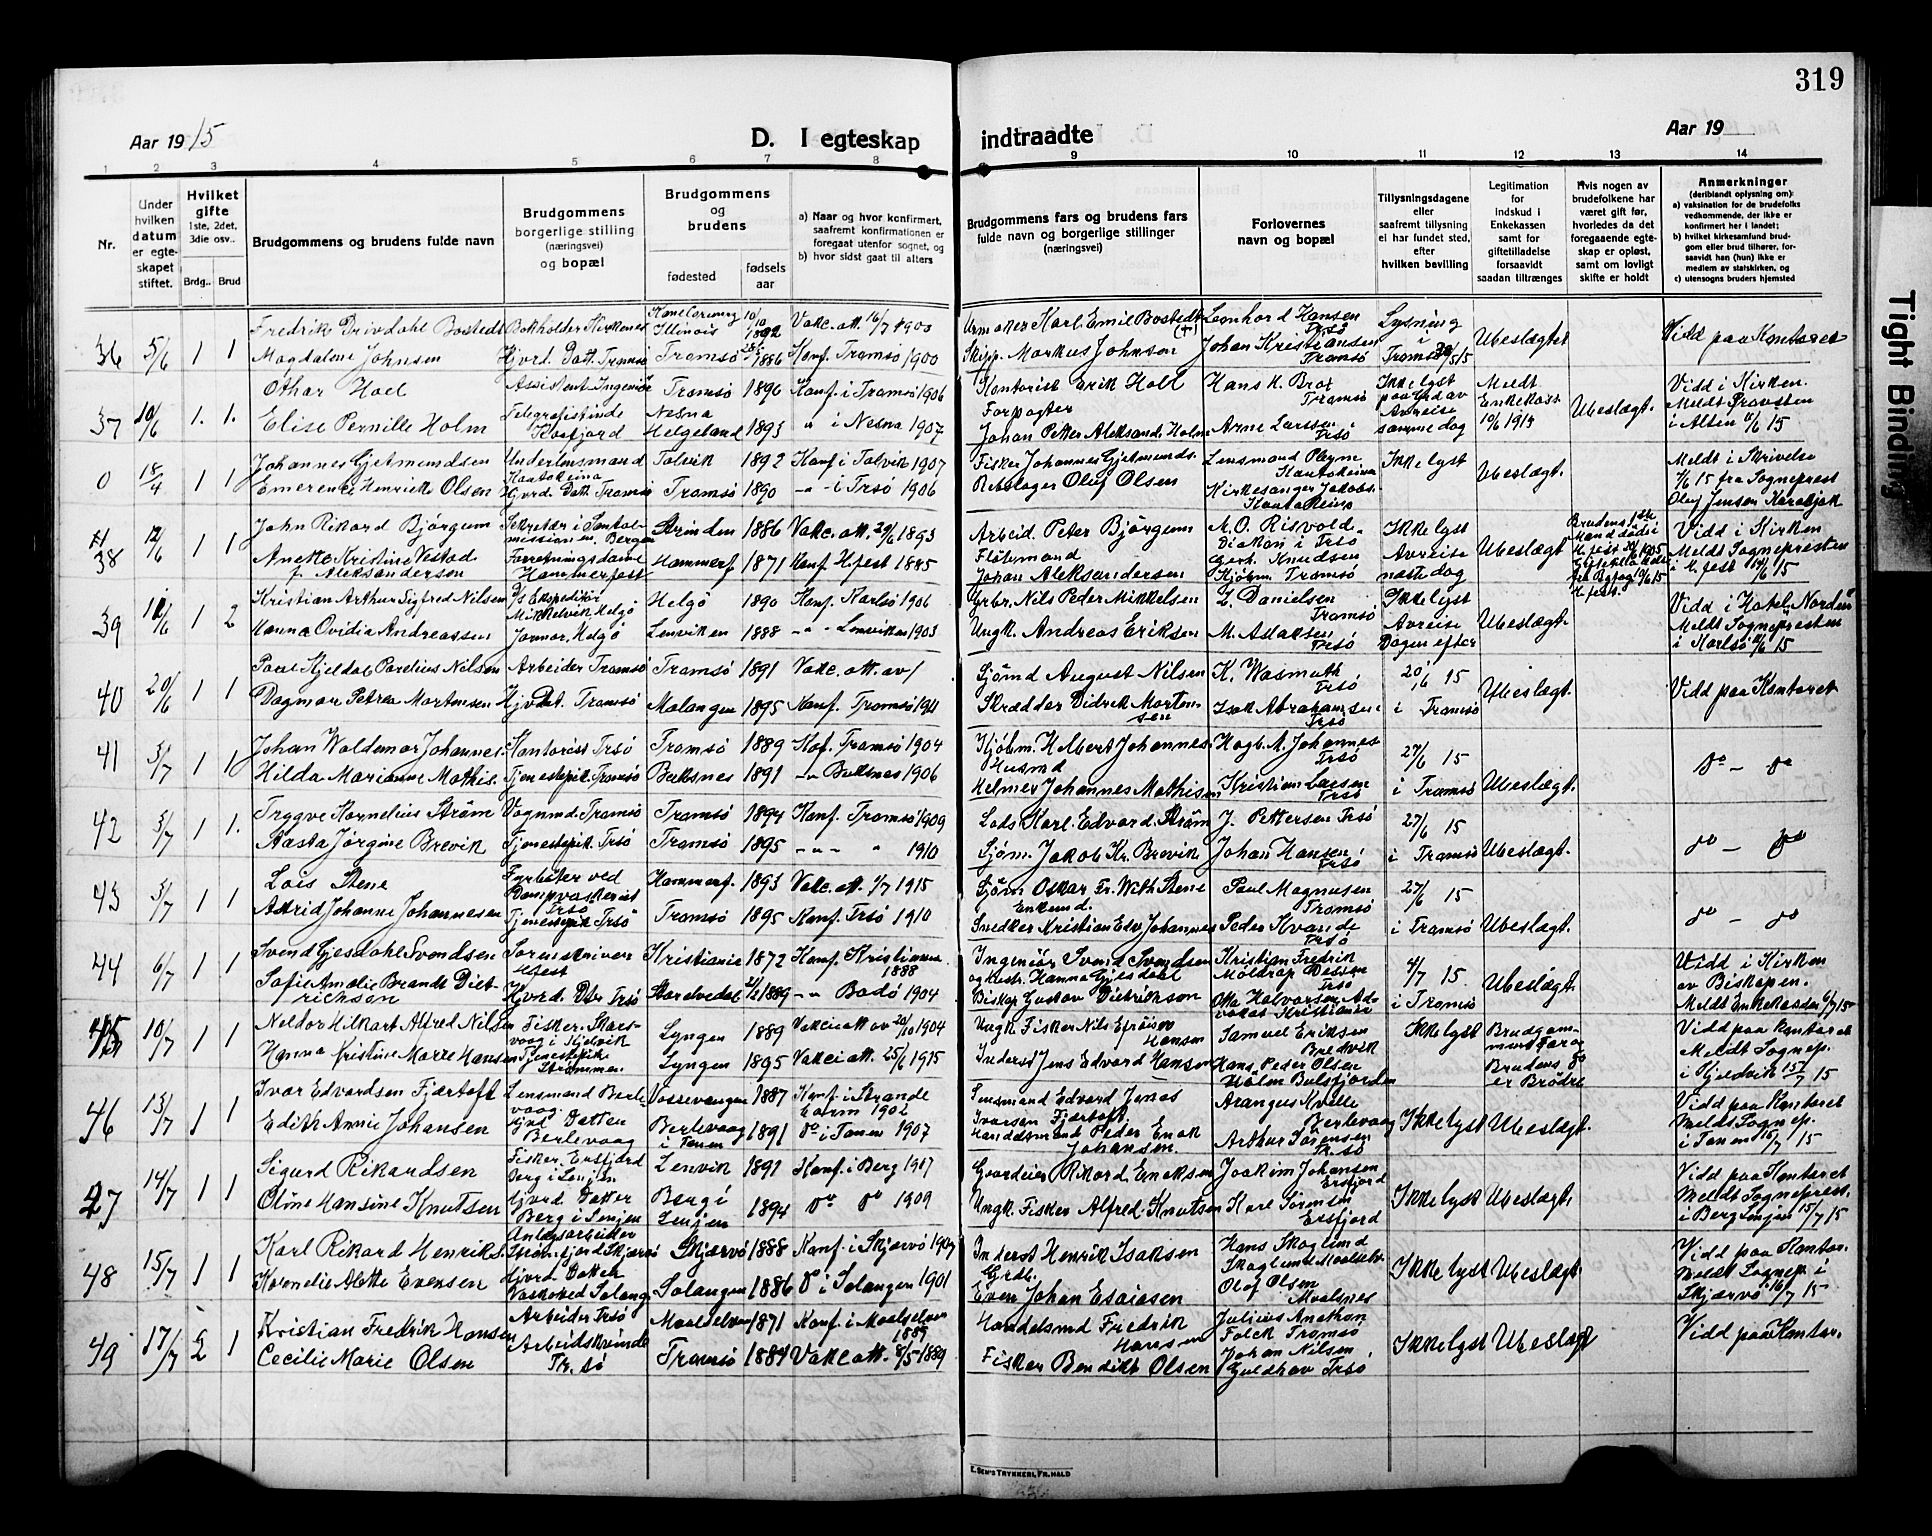 319
Aar 1915
D. I egteskap
indtraadte
Aar 19
1 2 3 4 5 6 7 8 9 10 11 12 13 14
Nr.
Under hvilken datum er egteskapet stiftet.
Hvilket gifte 1ste, 2det, 3die osv..
Brdg.. Brud
Brudgommens og brudens fulde navn
Brudgommens borgerlige stilling (næringsvei) og bopæl
Brudgommens og brudens
fødested
fødselsaar
a) Naar og hvor konfirmert, saafremt konfirmationen er foregaat utenfor sognet, og
b) hvor sidst gaat til alters
Brudgommens fars og brudens fars fulde navn og borgerlige stillinger (næringsvei)
Forlovernes navn og bopæl
Tillysningsdagene eller saafremt tillysning ei har fundet sted, efter hvilken bevilling
Legitimation for Indskud i Enkekassen samt for giftetilladelse forsaavidt saadan tiltrænges
Hvis nogen av brudefolkene har været gift før, hvorledes da det foregaaende egteskap er opløst, samt om lovligt skifte er holdt
Anmerkninger
(deriblandt oplysning om):
a) vaksination for de brudefolks vedkommende, der ikke er konfirmert her i landet;
b) hvilket kirkesamfund brudgom eller brud tilhører, forsaavidt han (hun) ikke er medlem av statskirken, og
c) utensogns bruders hjemsted
36 5/6 1 1 Fredrik Drivdahl Bostedt Illinois 1892 Vakc. att. 16/7 1900 Urmaker Karl Emil Bostedt (+) Leonhard Hansen Trsö Lysning i Tromsö 30/5 15 Ubeslægtet Vidd paa Kontoret
Magdalene Johnsen Hjvrd. Datt. Tromsö Tromsö 1886 Konf. Tromsö 1900 Skipp. Markus Johnsen Johan Kristiansen Tromsö
37 10/6 1. 1. Othar Hoel Assistent Ingeniör Tromsö 1890 Konf. i Tromsö 1906 Kontorist Erik Holl Hans H. Brox Tromsö Ikke lyst Avreise samme dag Meldt Enkekass 10/6 1915 Ubeslægt. Vidd i Kirken. Meldt Provsten i Alten 11/6 15
Elise Pernille Holm Telegrafistinde Kosfjord Nesna Helgeland 1893 " i Nesna 1907 Forpagter Johan Petter Aleksandr Holm Arne Larssen Trsö
0 18/4 1 1 Johannes Gjetmundsen Underlensmand Kautokeino Talvik 1892 Konf. i Talvik 1907 Fisker Johannes Gjetmunds. Lensmand Kautokeino Ikke lyst Ubeslægt. Meldt i Skrivelse fra Sogneprest Olaf Jensen Karasjok
Emerense Henrikke Olsen Hjvrd. Datt. Tromsö Tromsö 1890 -"- i Trsö 1906 Rebslager Oluf Olsen Kirkesanger Jakobs. Kautokeino
38 12/6 1 1 John Rikard Bjørgum Sekretær i Santalmissionen. Bergen Strinden 1886 Vakc. att. 20/6 1893 Arbeid. Peter Bjørgum M. O. Risvold Diakon i Trsö Ikke lyst Avreise næste dag Ubeslægt Brudens 1ste Mand döde i H.fest Vidd i Kirken Meldt Sognepresten i H.fest 14/6 15
Anette Kristine Vestad f. Aleksandersen Forretningsdame Hammerfest Hammerf. 1871 Konf. H.fest 1885 Flötmand Johan Aleksandersen Gerh. Knudsen Kjöbm. Tromsö
39 1 2 Kristian Arthur Sigfred Nilsen D/S Ekspeditör Mikkelvik, Helgö Helgö 1890 Konf. Karlsö 1906 Grbr. Nils Peder Mikkelsen L. Danielsen Tromsö Ikke lyst Avreise Dagen efter Ubeslægt. Vidd i Hotel Norden Meldt Sognepresten i Karlsö
Hanna Ovidia Andreassen Jormor. Helgö Lenviken 1888 -"- Lenviken 1903 Ungk. Andreas Eriksen M. Aslaksen Trsö
40 20/6 1 1 Paul Kjeldal Paulius Nilsen Arbeider Tromsö Tromsö 1891 Vakc. att. av / Sjömd August Nilsen K. Wasmuth Trsö 20/6 15 i Tromsö Ubeslægt. Vidd paa Kontoret
Dagmar Petrea Mortensen Hjvrd. Tromsö Malangen 1895 Konf. Tromsö 1911 Skrædder Didrik Mortensen Isak Abrahamsen Trsö
41 3/7 1 1 Johan Waldemar Johannes. Kontorist Trsö Tromsö 1889 Kof. Tromsö 1904 Kjöbm. Helbert Johannes. Hagb. A. Johannes. Trsö 27/6 15 i Tromsö Ubeslægt. do - do
Hilda Marianne Mathis. Tjenestepik. Tromsö Buksnes 1891 -"- Buksnes 1906 Husmd Helmer Johannes Mathisen Kristian Larsen Trsö
42 3/7 1 1. Trygve Kornelius Ström Vognmd. Tromsö Tromsö 1894 Konf. Tromsö 1909 Lods Karl Edvard Ström J. Pettersen Trsö 27/6 15 i Tromsö Ubeslægt. do - do
Aasta Jørgine Brevik Tjenestepik. Trsö Tromsö 1895 -"- " 1910 Sjöm. Jakob Kr. Brevik Johan Hansen Trsö
43 3/7 1 1 Lois Stene Fyrböter ved Dampvaskeriet Trsö Hammerf. 1893 Vakc. att. 1/7 1915 Sjöm Oskar Fr. Wilh Stene Enkemd. Paul Magnusen Tromsö 27/6 15 i Tromsö Ubeslægt. do - do
Astrid Johanne Johannesen Tjenestepik Trsö Tromsö 1895 Konf. Trsö 1910 Snedker Kristian Edv. Johannes. Peder Kvande Trsö
44 6/7 1 1 Svend Gjesdahl Svendsen Sorenskriver Hfest Kristiania 1872 Konf. Kristiania 1888 Ingeniör Svend Svendsen og Hustr. Hanna Gjesdahl Kristian Fredrik Möldrap Dessen Trsö 4/7 15. i Tromsö Ubeslægt. Vidd i Kirken av Biskopen. Meldt Enkekassen 6/7 15
Sofie Amalie Brandt Dietrichsen Hjvrd. Dtr Trsö 1889 -"- Bodö 1904 Biskop Gustav Dietrichson Otto Halvorsen Advokat Kristiania
45 10/7 1 1 Neldor Hilkart Alfred Nilsen Fisker. Lyngen 1889 Vakci att av 20/10 1904 Ungk. Fisker Nils Efraim Hansen Samuel Eriksen Bredvik Ikke lyst Brudgommens Far og Brudens do er Brödre Vidd paa Kontoret Meldt Sognep. i Kjeldvik 15/7 15
Hanna Kristine Marie Hansen Tjenestepike Strömmen. Lyngen 1895 Vakci att. 25/6 1915 Inderst Jens Edvard Hansen Hans Peder Olsen Holm Balsfjorden
46 13/7 1 1 Ivar Edvardsen Fjærtoft Lensmand Berlevaag Vossevangen 1887 Konf. i Strande 1902 Lensmand Edvard Jonas Ivarsen Fjærtoft Berlevaag Ikke lyst Ubeslægt. Vidd paa Kontoret Meldt Sognep. i Tanen 15/7 15
Edith Annie Johansen Hjvrd Datter Berlevaag Berlevaag i Tanen 1891 do i Tanen 1907 Handelsmand Peder Enok Johansen. Arthur Sörensen Tr.sö
47 14/7 1 1 Sigurd Rikardsen Fisker. Ersfjord Berg i Senjen Lenvik 1891 Konf. i Berg 1907 Gaardeier Rikard Eneksen Joakim Johansen Ersfjord Ikke lyst Ubeslægt. Vidd paa Kontoret Meldt Sogneprest. i Berg Senjen 15/7 15
Oline Hansine Knutsen Hjvrd Datter Berg i Senjen Berg i Senjen 1894 do do 1909 Ungk. Fisker Alfred Knutsen Karl Ersfjord
48 15/7 1 1 Karl Rikard Henriks. Anlægsarbeider Skjærvö Skjærvö 1888 Konf. i Skjærvö Inderst Henrik Isaksen Hans Skoglund Ikke lyst Ubeslægt. Vidd paa Kontor. Meldt Sognep. i Skjærvö 16/7 15
Kornelie Alette Evensen Hjvrd Datter Salangen 1886 do i Salangen 1901 Grdb. Even Johan Esaiasen Olaf Olsen Moalsnes
49 17/7 2 1 Kristian Fredrik Hansen Arbeider Trsö Maalselven 1871 Konf. i Maalselven 1889 Handelsmd Fredrik Hansen Julius Anethon Falck Tromsö Ikke lyst Ubeslægt Vidd paa Kontor.
Cecilie Marie Olsen Arbeidskvinde Tr.sö Tromsö 1884 Vakc att. 8/5 1889 Fisker Bendikt Olsen Johan Nilsen, Guldhav Trsö
E. SEM'S TRYKKERI, FR.HALD
Tight Binding